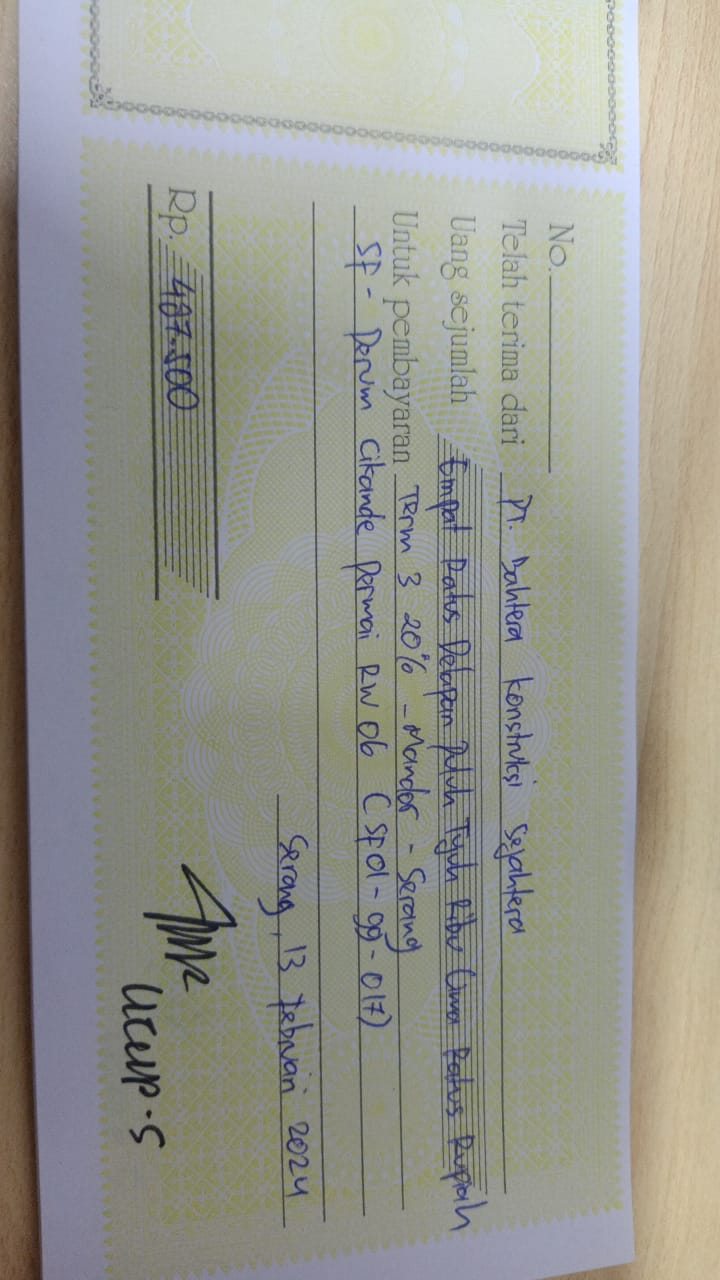 No.
Telah terima dari PT. Bahtera Konstruksi Sejahtera
Uang sejumlah Empat Ratus Delapan Puluh Tujuh Ribu Lima Ratus Rupiah
Untuk pembayaran Term 3 20% - Mandor - Serang
SF - Perum Cikande Permai RW 06 (SF01-99-017)
Serang, 13 Februari 2024
Rp. 487.500
Ucup.S